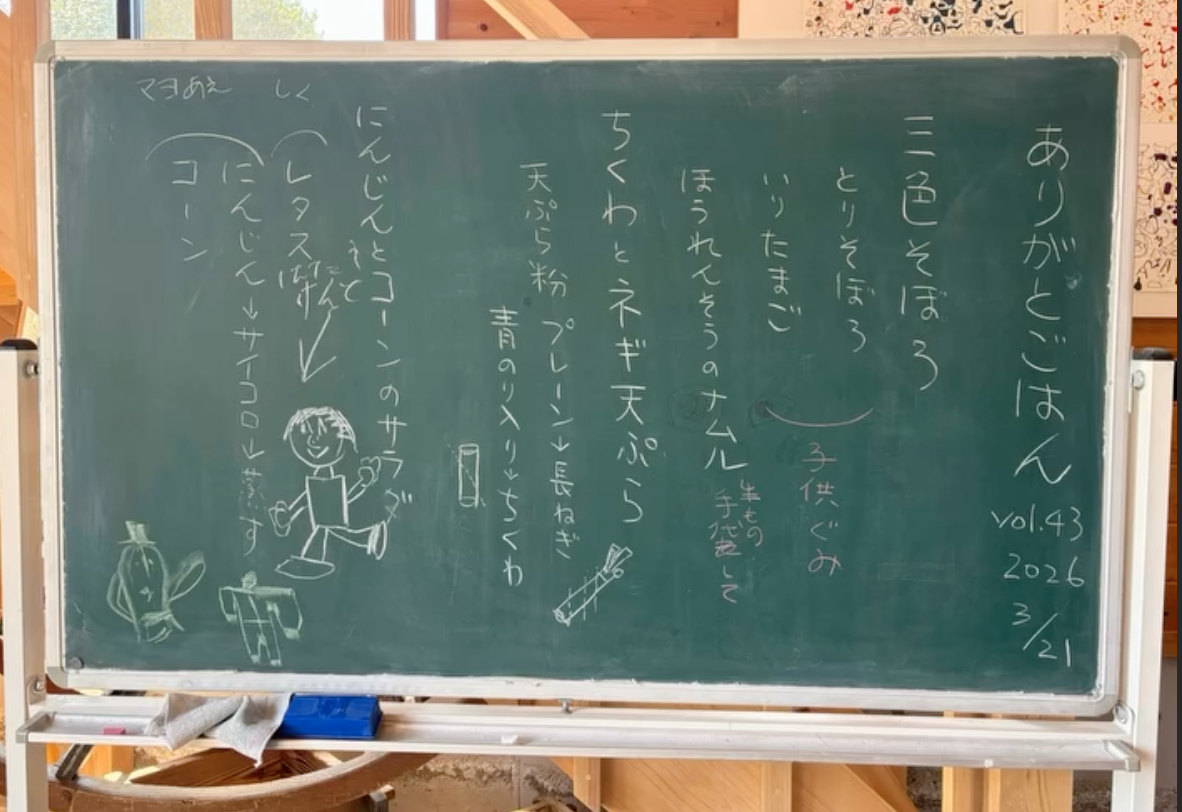 ありがとごはん
vol.43
2026
3/21
三色そぼろ
とりそぼろ
いりたまご
子供ぐみ
ほうれんそうのナムル
生もの
手袋して
ちくわとネギ天ぷら
天ぷら粉
プレーン→長ねぎ
青のり入り→ちくわ
にんじんとコーンのサラダ
しく
レタス
マヨあえ
にんじん→サイコロ→蒸す
コーン